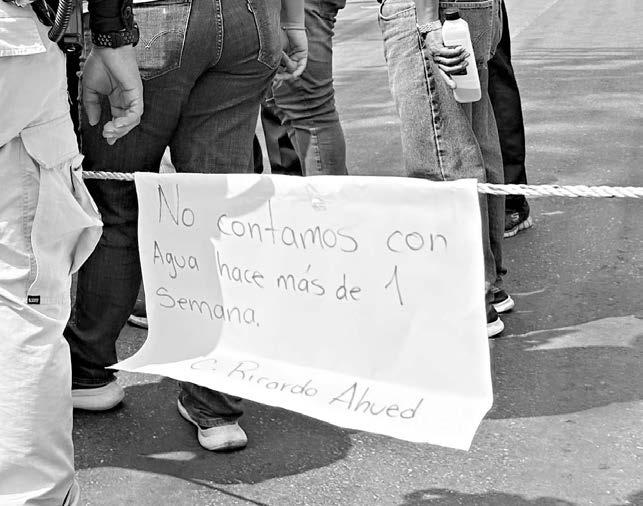 No contamos con
Agua hace más de 1
Semana.
C. Ricardo Ahued